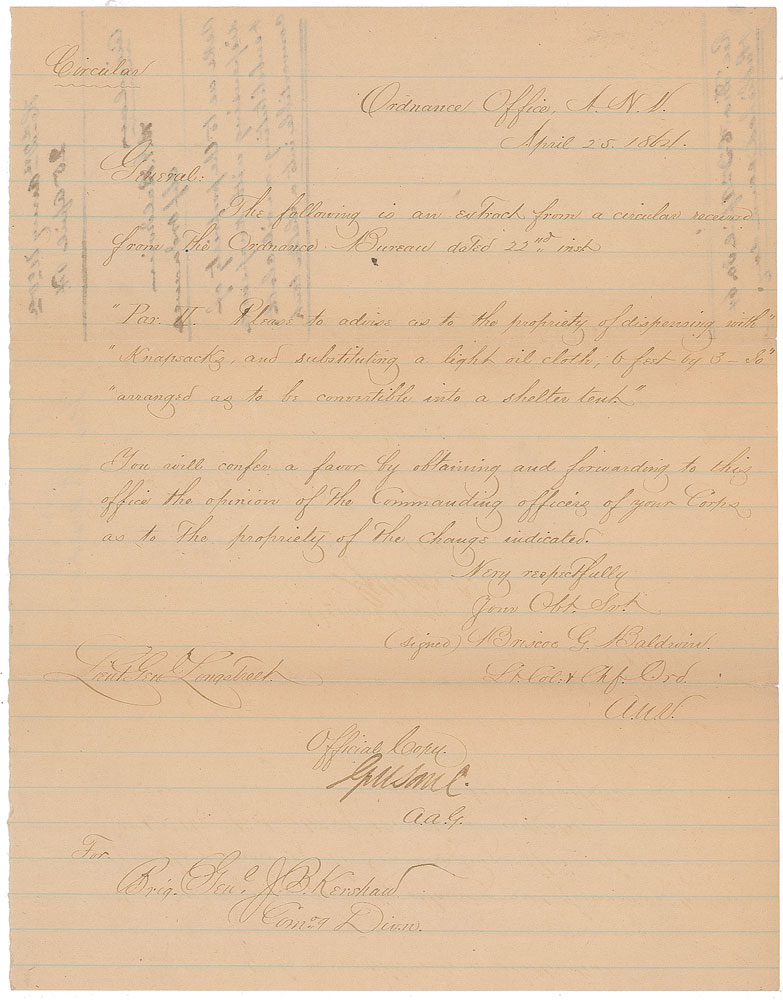 Circular
Ordnance Office, A. N. V.
April 25. 1864.
General:
The following is an extract from a circular received
from the Ordnance Bureau dated 22nd inst
"Par. II. Please to advise as to the propriety of dispensing with"
"Knapsacks, and substituting a light oil cloth, 6 feet by 3 - So"
"arranged as to be convertible into a shelter tent"
You will confer a favor by obtaining and forwarding to this
office the opinion of the Commanding officers of your Corps
as to the propriety of the change indicated.
Very respectfully
Your Obt. Svt.
(signed) Briscoe G. Baldwin.
Lt. Col. & Chf. Ord.
A.N.V.
Lieut. Genl Longstreet.
Official Copy.
A.A.G.
For.
Brig. Genl. J. B. Kershaw
Comdg Divn.